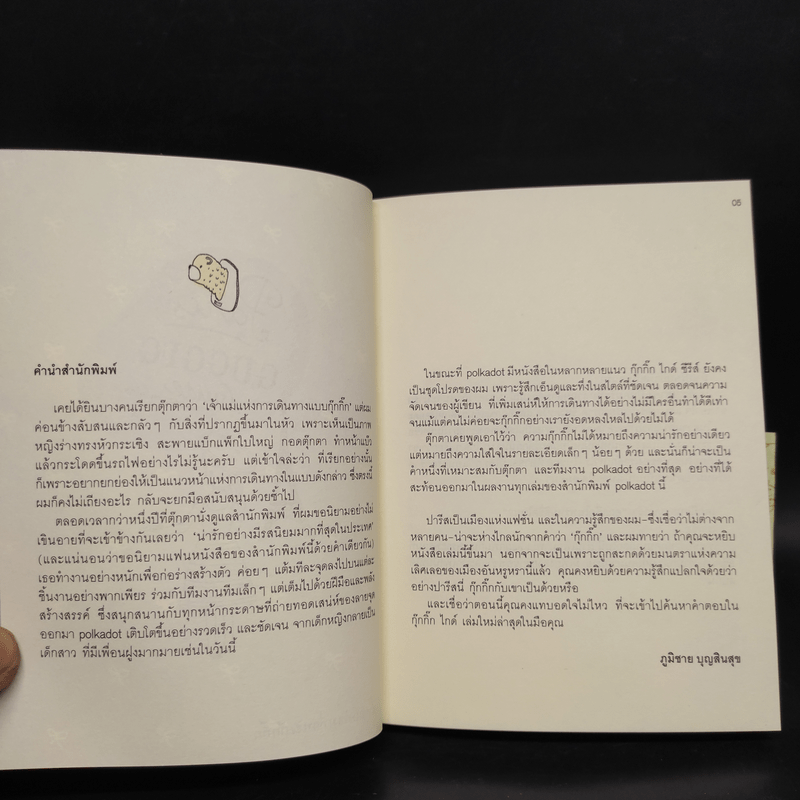 คำนำสำนักพิมพ์
เคยได้ยินบางคนเรียกตุ๊กตาว่า 'เจ้าแม่แห่งการเดินทางแบบกุ๊กกิ๊ก' แต่ผม
ค่อนข้างสับสนและกลัวๆ กับสิ่งที่ปรากฏขึ้นมาในหัว เพราะเห็นเป็นภาพ
หญิงร่างทรงหัวกระเซิง สะพายแบ็กแพ็กใบใหญ่ กอดตุ๊กตา ทำหน้าแบ๊ว
แล้วกระโดดขึ้นรถไฟอย่างไรไม่รู้นะครับ แต่เข้าใจล่ะว่า ที่เรียกอย่างนั้น
ก็เพราะอยากยกย่องให้เป็นแนวหน้าแห่งการเดินทางในแบบดังกล่าว ซึ่งตรงนี้
ผมก็คงไม่เถียงอะไร กลับจะยกมือสนับสนุนด้วยซ้ำไป
ตลอดเวลากว่าหนึ่งปีที่ตุ๊กตานั่งดูแลสำนักพิมพ์ ที่ผมขอนิยามอย่างไม่
เขินอายที่จะเข้าข้างกันเลยว่า 'น่ารักอย่างมีรสนิยมมากที่สุดในประเทศ'
(และแน่นอนว่าขอนิยามแฟนหนังสือของสำนักพิมพ์นี้ด้วยคำเดียวกัน)
เธอทำงานอย่างหนักเพื่อก่อร่างสร้างตัว ค่อยๆ แต้มทีละจุดลงไปบนแต่ละ
ชิ้นงานอย่างพากเพียร ร่วมกับทีมงานทีมเล็กๆ แต่เต็มไปด้วยฝีมือและพลัง
สร้างสรรค์ ซึ่งสนุกสนานกับทุกหน้ากระดาษที่ถ่ายทอดเสน่ห์ของลายจุด
ออกมา polkadot เติบโตขึ้นอย่างรวดเร็ว และชัดเจน จากเด็กหญิงกลายเป็น
เด็กสาว ที่มีเพื่อนฝูงมากมายเช่นในวันนี้
05
ในขณะที่ polkadot มีหนังสือในหลากหลายแนว กุ๊กกิ๊ก ไกด์ ซีรีส์ ยังคง
เป็นชุดโปรดของผม เพราะรู้สึกเอ็นดูและทึ่งในสไตล์ที่ชัดเจน ตลอดจนความ
จัดเจนของผู้เขียน ที่เพิ่มเสน่ห์ให้การเดินทางได้อย่างไม่มีใครอื่นทำได้ดีเท่า
จนแม้แต่คนไม่ค่อยจะกุ๊กกิ๊กอย่างเรายังอดหลงใหลไปด้วยไม่ได้
ตุ๊กตาเคยพูดเอาไว้ว่า ความกุ๊กกิ๊กไม่ได้หมายถึงความน่ารักอย่างเดียว
แต่หมายถึงความใส่ใจในรายละเอียดเล็กๆ น้อยๆ ด้วย และนั่นก็น่าจะเป็น
คำหนึ่งที่เหมาะสมกับตุ๊กตา และทีมงาน polkadot อย่างที่สุด อย่างที่ได้
สะท้อนออกมาในผลงานทุกเล่มของสำนักพิมพ์ polkadot นี้
ปารีสเป็นเมืองแห่งแฟชั่น และในความรู้สึกของผม-ซึ่งเชื่อว่าไม่ต่างจาก
หลายคน-น่าจะห่างไกลนักจากคำว่า 'กุ๊กกิ๊ก' และผมทายว่า ถ้าคุณจะหยิบ
หนังสือเล่มนี้ขึ้นมา นอกจากจะเป็นเพราะถูกสะกดด้วยมนตราแห่งความ
เลิศเลอของเมืองอันหรูหรานี้แล้ว คุณคงหยิบด้วยความรู้สึกแปลกใจด้วยว่า
อย่างปารีสนี่ กุ๊กกิ๊กกับเขาเป็นด้วยหรือ
และเชื่อว่าตอนนี้คุณคงแทบอดใจไม่ไหว ที่จะเข้าไปค้นหาคำตอบใน
กุ๊กกิ๊ก ไกด์ เล่มใหม่ล่าสุดในมือคุณ
ภูมิชาย บุญสินสุข